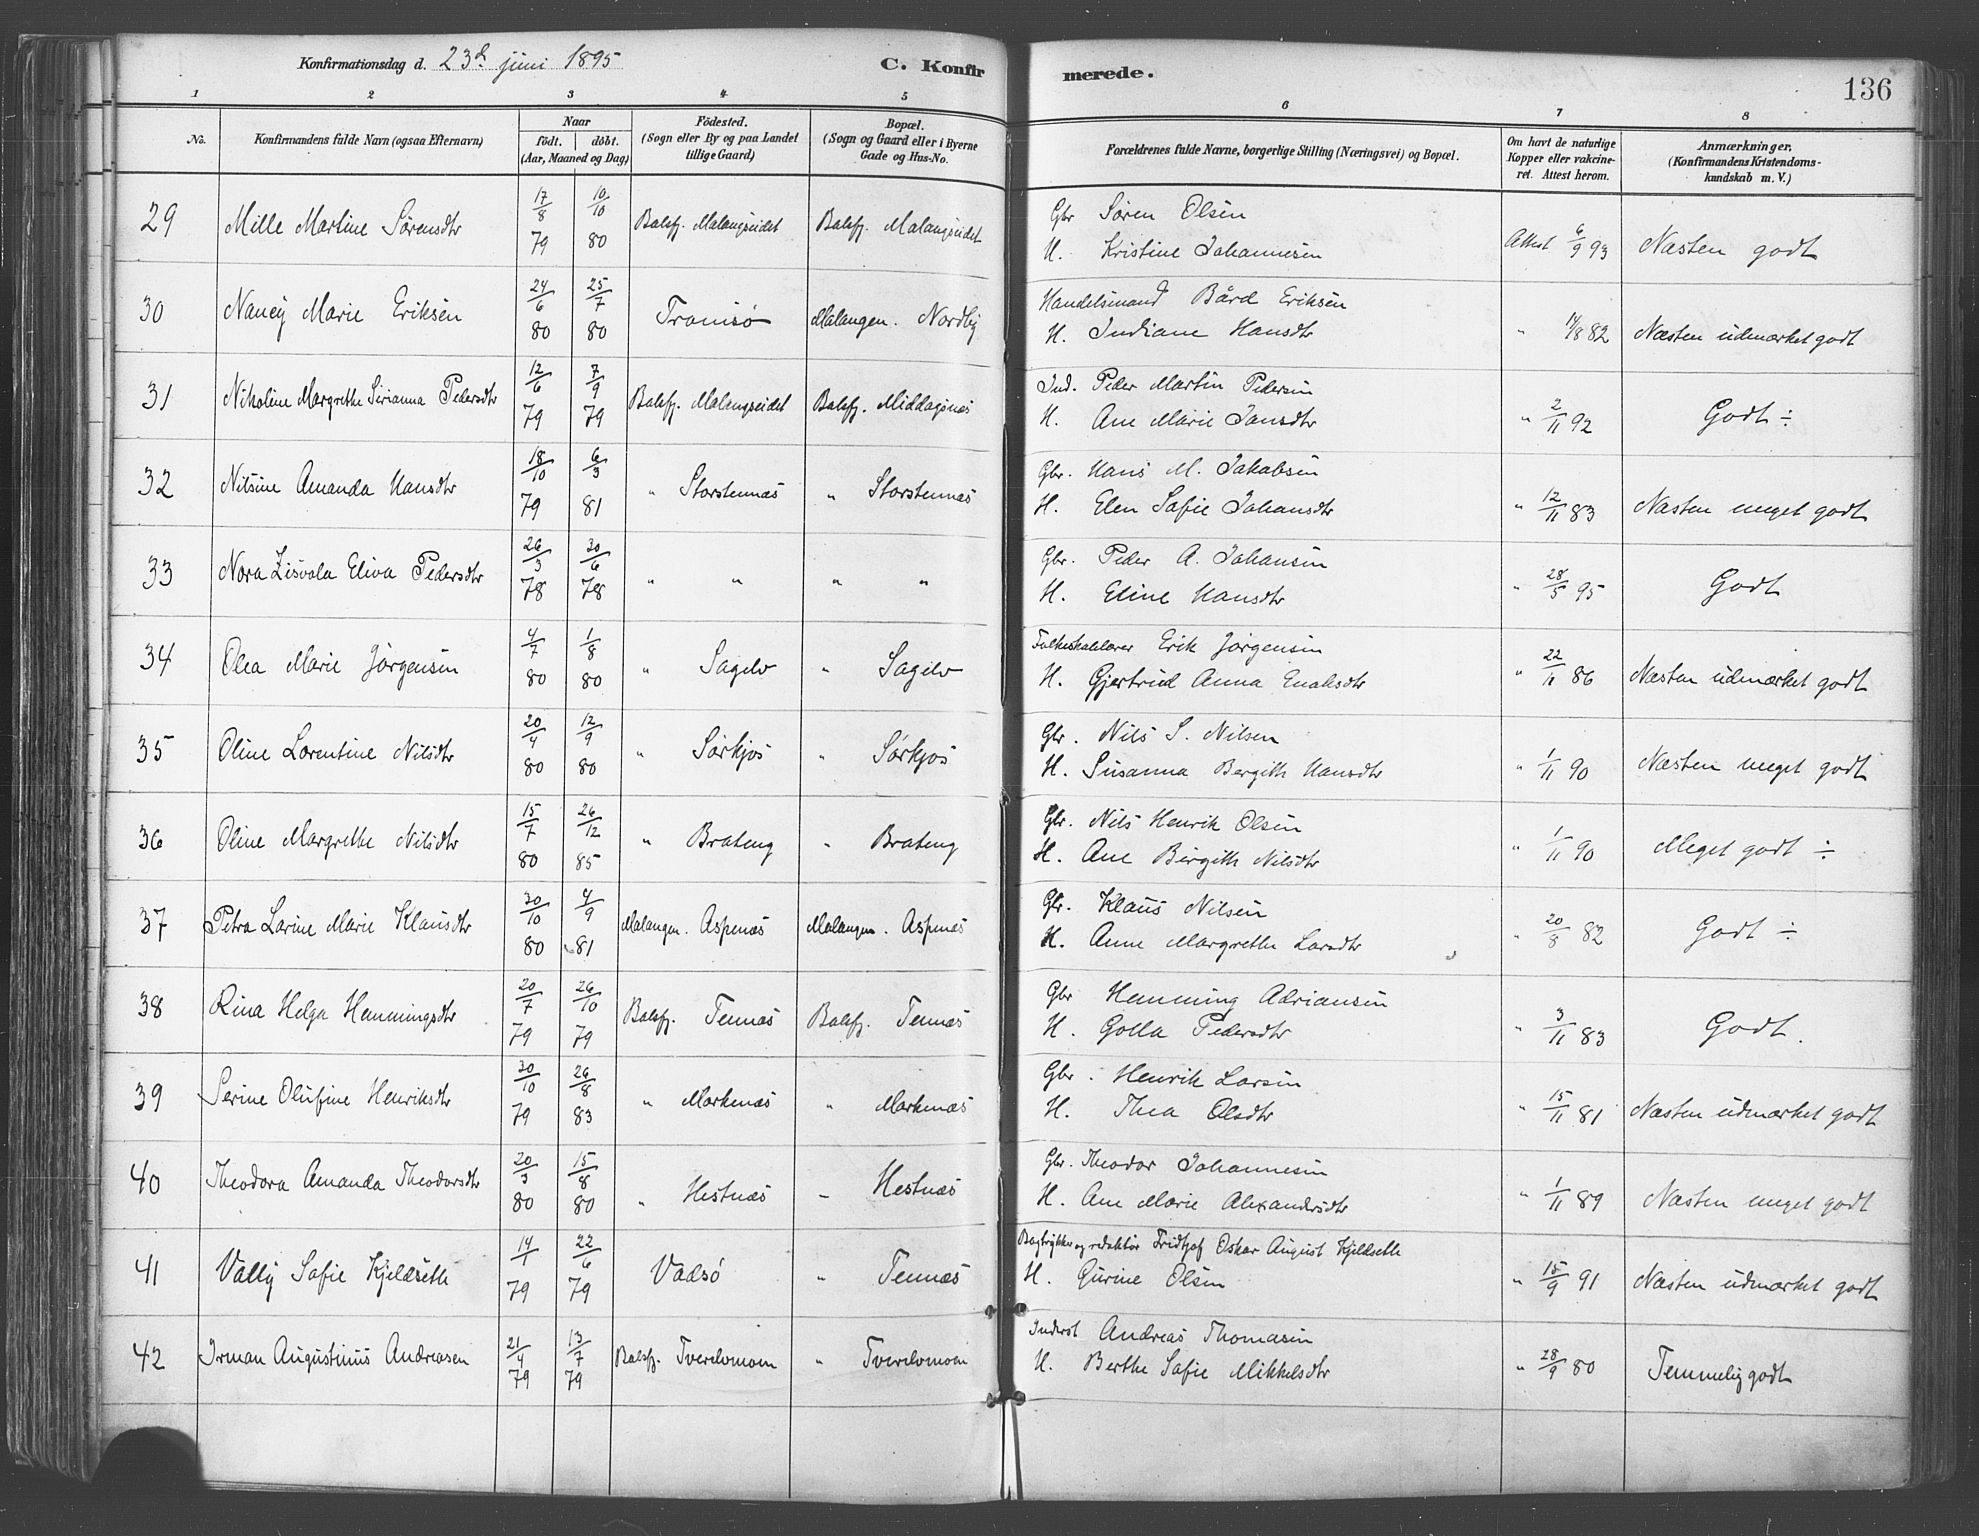 Konfirmationsdag d. 23d juni 1895 C. Konfirmerede. 136
1 2 3 4 5 6 7 8
No. Konfirmandens fulde Navn (ogsaa Efternavn) Naar födt. döbt. (Aar, Maaned og Dag) Födested. (Sogn eller By og paa Landet tillige Gaard) Bopæl. (Sogn og Gaard eller i Byerne Gade og Hus-No. Forældrenes fulde Navne, borgerlige Stilling (Næringsvei) og Bopæl. Om havt de naturlige Kopper eller vakcineret. Attest herom. Anmærkninger. (Konfirmandens Kristendomskundskab m. V.)
29 Mille Martine Sørensdtr 17/8 79 10/10 80 Balsfj. Malangseidet Balsfj. Malangseidet Gbr Søren Olsen
H. Kristine Johannesen Attest 6/9 93 Næsten godt
30 Nancy Marie Eriksen 24/6 80 25/7 80 Tromsø Malangen. Nordby Handelsmand Bård Eriksen
H. Indiane Hansdtr " 1/8 82 Næsten udmærket godt
31 Nikoline Margrethe Sirianna Pedersdtr 12/6 79 7/9 79 Balsfj. Malangseidet Balsfj. Middagsnæs Ind. Peder Martin Pedersen
H. Ane Marie Jansdtr " 2/11 92 Godt ÷
32 Nilsine Amanda Hansdtr 18/10 79 6/3 81 " Storstennæs " Storstennæs Gbr. Hans M. Jakobsen
H. Elen Sofie Johansdtr " 12/11 83 Næsten meget godt
33 Nora Zisvola Eliva Pedersdtr 26/3 78 30/6 78 " " " " Gbr. Peder A. Johansen
H. Eline Hansdtr " 28/5 95 Godt
34 Olea Marie Jørgensen 4/7 80 1/8 80 " Sagelv " Sagelv Folkeskolelærer Erik Jørgensen
H. Gjertrud Anna Enoksdtr " 22/11 86 Næsten udmærket godt
35 Oline Lorentine Nilsdtr 20/4 80 12/9 80 " Sørkjos " Sørkjos Gbr. Nils S. Nilsen
H. Susanna Bergith Hansdtr " 1/11 90 Næsten meget godt
36 Oline Margrethe Nilsdtr 15/7 80 26/12 85 " Brateng " Brateng Gbr. Nils Henrik Olsen
H. Ane Birgith Nilsdtr " 1/11 90 Meget godt ÷
37 Petra Larine Marie Klausdtr 30/10 80 4/9 81 Malangen. Aspenæs Malangen. Aspenæs Gbr. Klaus Nilsen
H. Anne Margrethe Larsdtr " 20/8 82 Godt ÷
38 Rina Helga Hemmingsdtr 20/7 79 26/10 79 Balsfj. Tennæs Balsfj. Tennæs Gbr Hemming Adriansen
H. Golla Pedersdtr " 3/11 83 Godt.
39 Serine Olufine Henriksdtr 30/10 79 26/8 83 " Markenæs " Markenæs Gbr. Henrik Larsen
H. Thea Olsdtr " 15/11 81 Næsten udmærket godt
40 Theodora Amanda Theodorsdtr 20/3 80 15/8 80 " Hestnæs " Hestnæs Gbr. Theodor Johannesen
H. Ane Marie Alexandersdtr " 1/11 89 Næsten meget godt
41 Vally Sofie Kjeldseth 14/1 79 22/6 79 Vadsø " Tennæs Bogtrykker og redaktør Fridtjof Oskar August Kjeldseth
H. Gurine Olsen " 15/9 91 Næsten udmærket godt
42 Irman Augustinus Andreasen 21/4 79 13/7 79 Balsfj. Tverelvmoen " Tverelvmoen Inderst Andreas Thomasen
H. Berthe Sofie Mikkelsdtr " 28/9 80 Temmelig godt